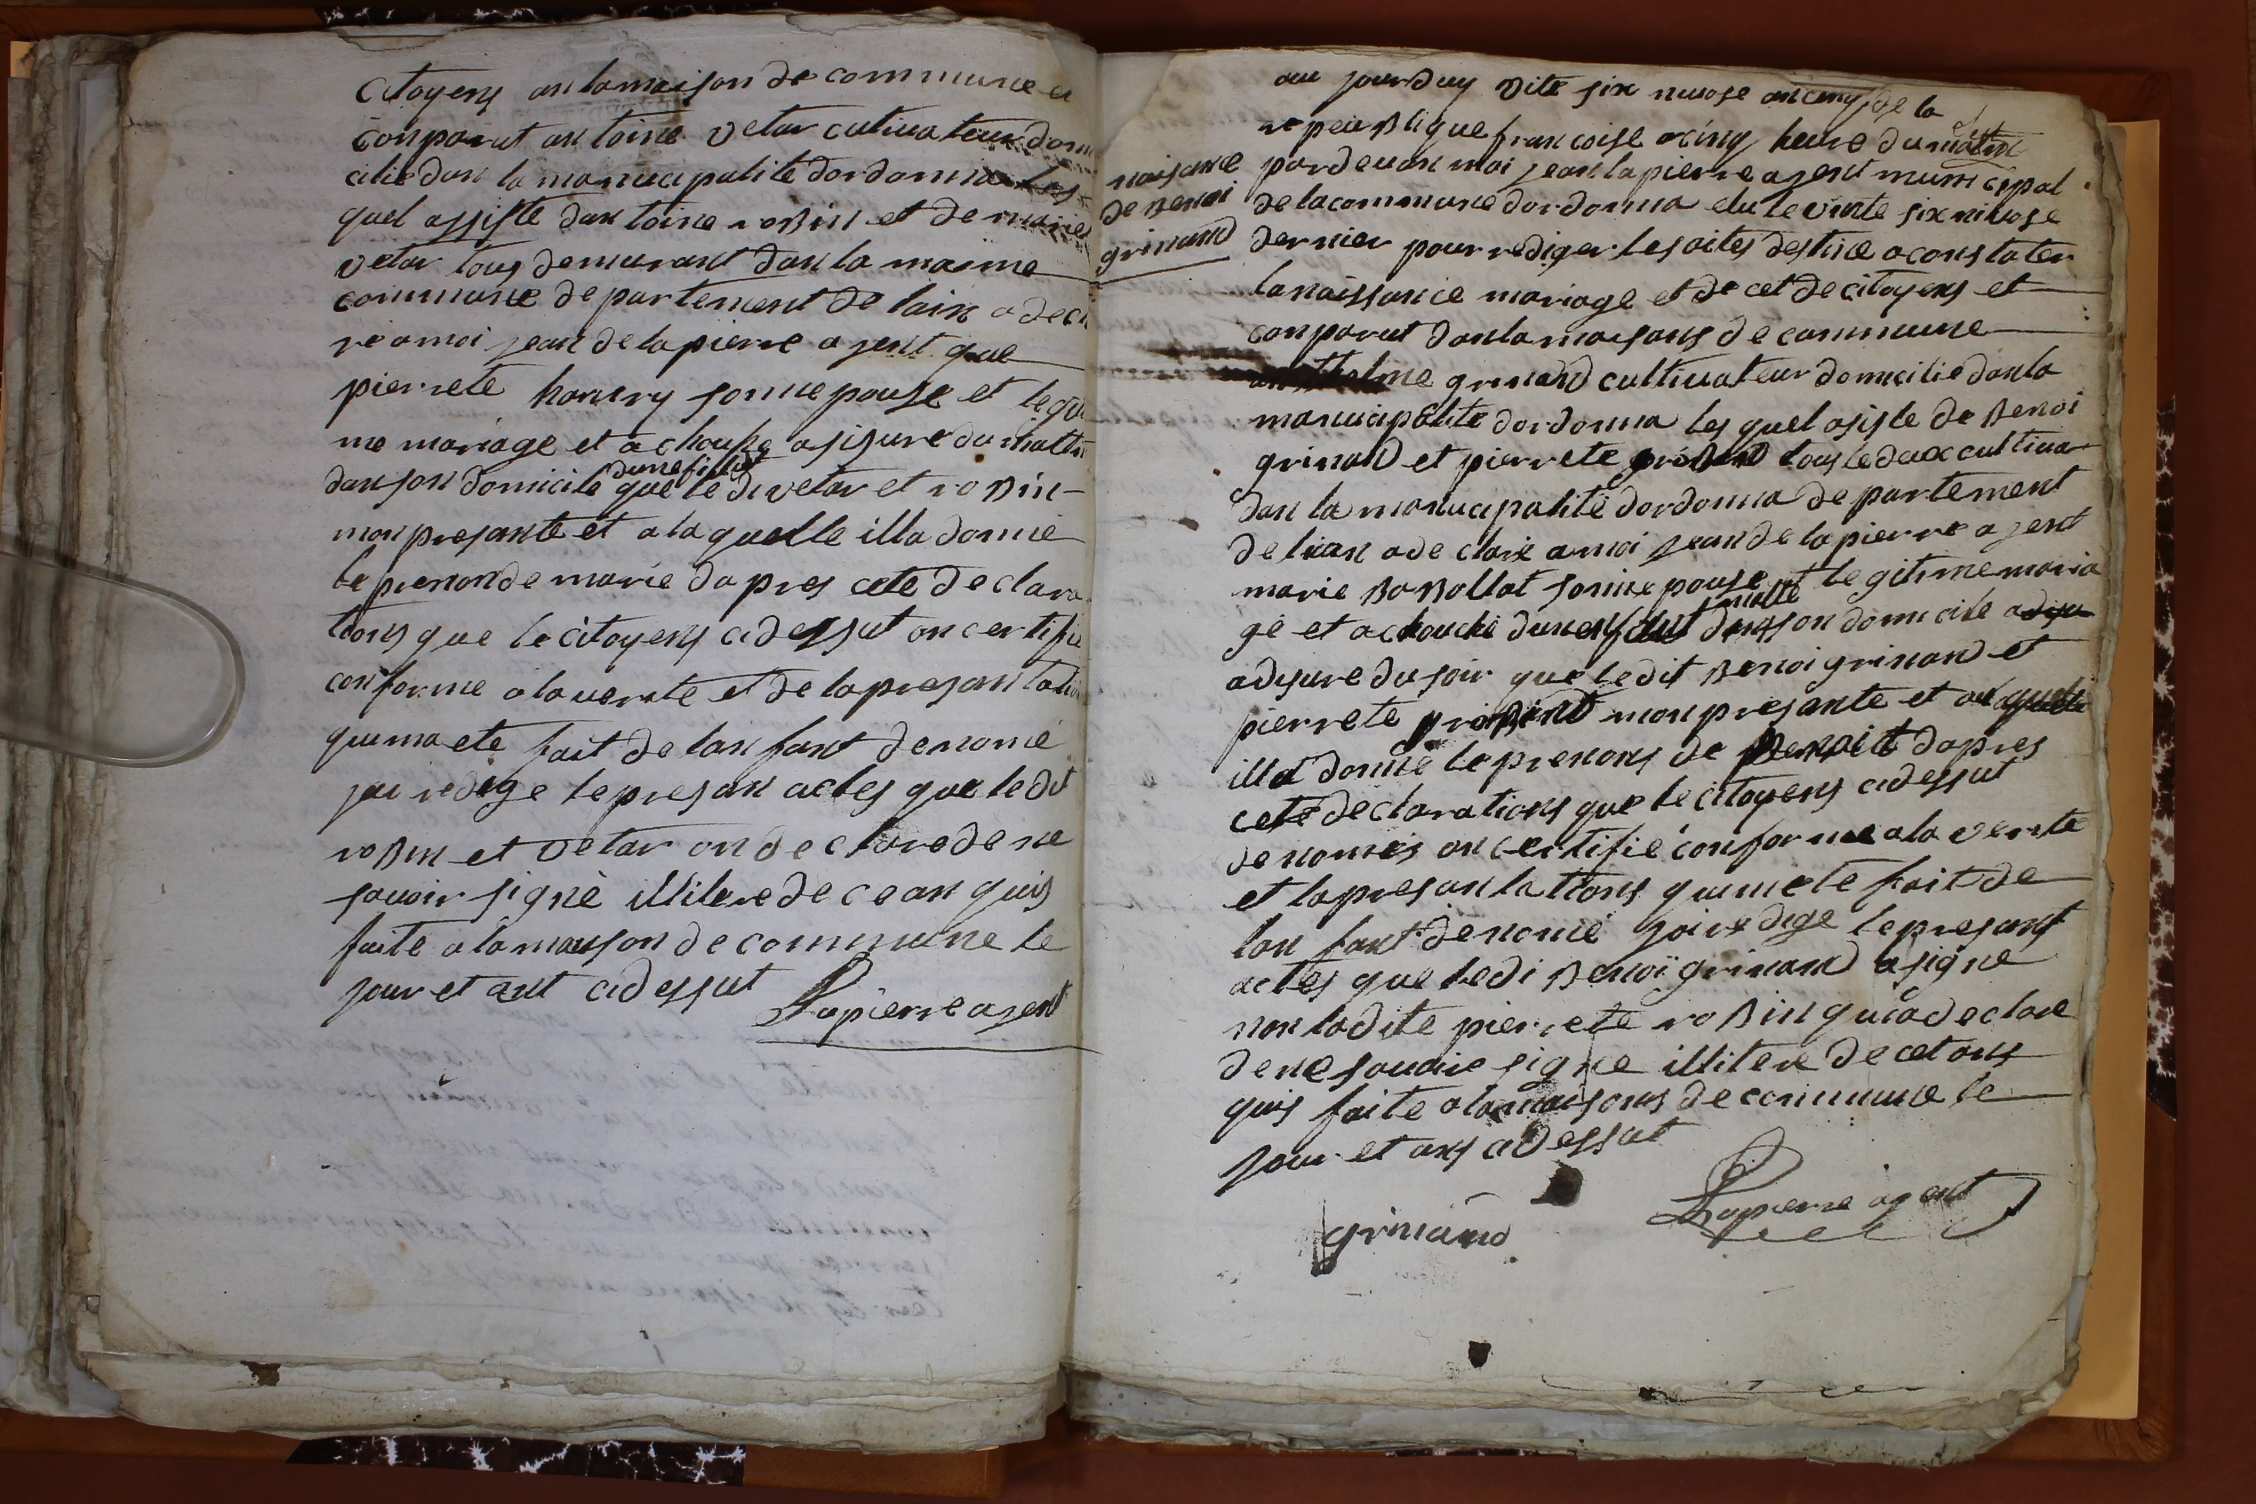 citoyens an la maison de commune et
conparut antoine vetar cutivateur domi
cilie dan la manucipalite dordonna les
quel assiste dantoine roBin et de marie
vetar tous demurant dan la maeme
commune departement de lain a decla
ré a moi jean de lapierre agent que
pierrete honnry sonne pouse et legiti
me mariage et a chouche a sis ure du mattin
dan son domicile dunefillie que le di vetar et roBin
mon presante et a la quelle illa donné
le prenon de marie dapres cete declara
tions que le citoyens cidessut on certifie
conforme a la verite et de la presantation
quima ete fait de lanfant denomé
jai redige le presan actes que le dit
roBin et vetar on declare de ne
savoir signè illitere de ce an quis
faite a la maison de commune le
jour et ant cidessut
Lapierre agent
naisance
de Benoi
grinand
au jourduy vite six nivose an cinq de la
repeuBlique francoise a cinq heure du matin
pardevan moi jean lapierre agent municipal
de la commune dordonna elu le vinte six nivose
dernier pour rediger les actes destine a constater
la naissance mariage et decet de citoyens et
conparut dan la maisons de commune
grinand cultivateur domicilie dan la
manucipalite dordonna les quel asiste de Benoi
grinand et pierrete tous le deux cultiva
dan la manucipalité dordonna departement
de lian a declaré a moi jean de lapierre agent
marie BoBollat sonne pouse et legitime maria
ge et a chouché dun enfant malle dan son domicile
a dis ure du soir que le dit Benoi grinand et
pierrete mon presante et a laquelle
illa donné le prenons de Benoit dapres
cete declarations que le citoyens cidessut
denomés on certifie conforme a la verite
et la presantations quimete fait de
lan fant denomé jai redige le presant
actes que ledi Benoï grinand a signe
non ladite pierrete roBin qui a declare
de ne savoire signe illitere de cet ans
quis faite a la maisons de commune le
jour et ans cidessut
grinand
Lapierre agent